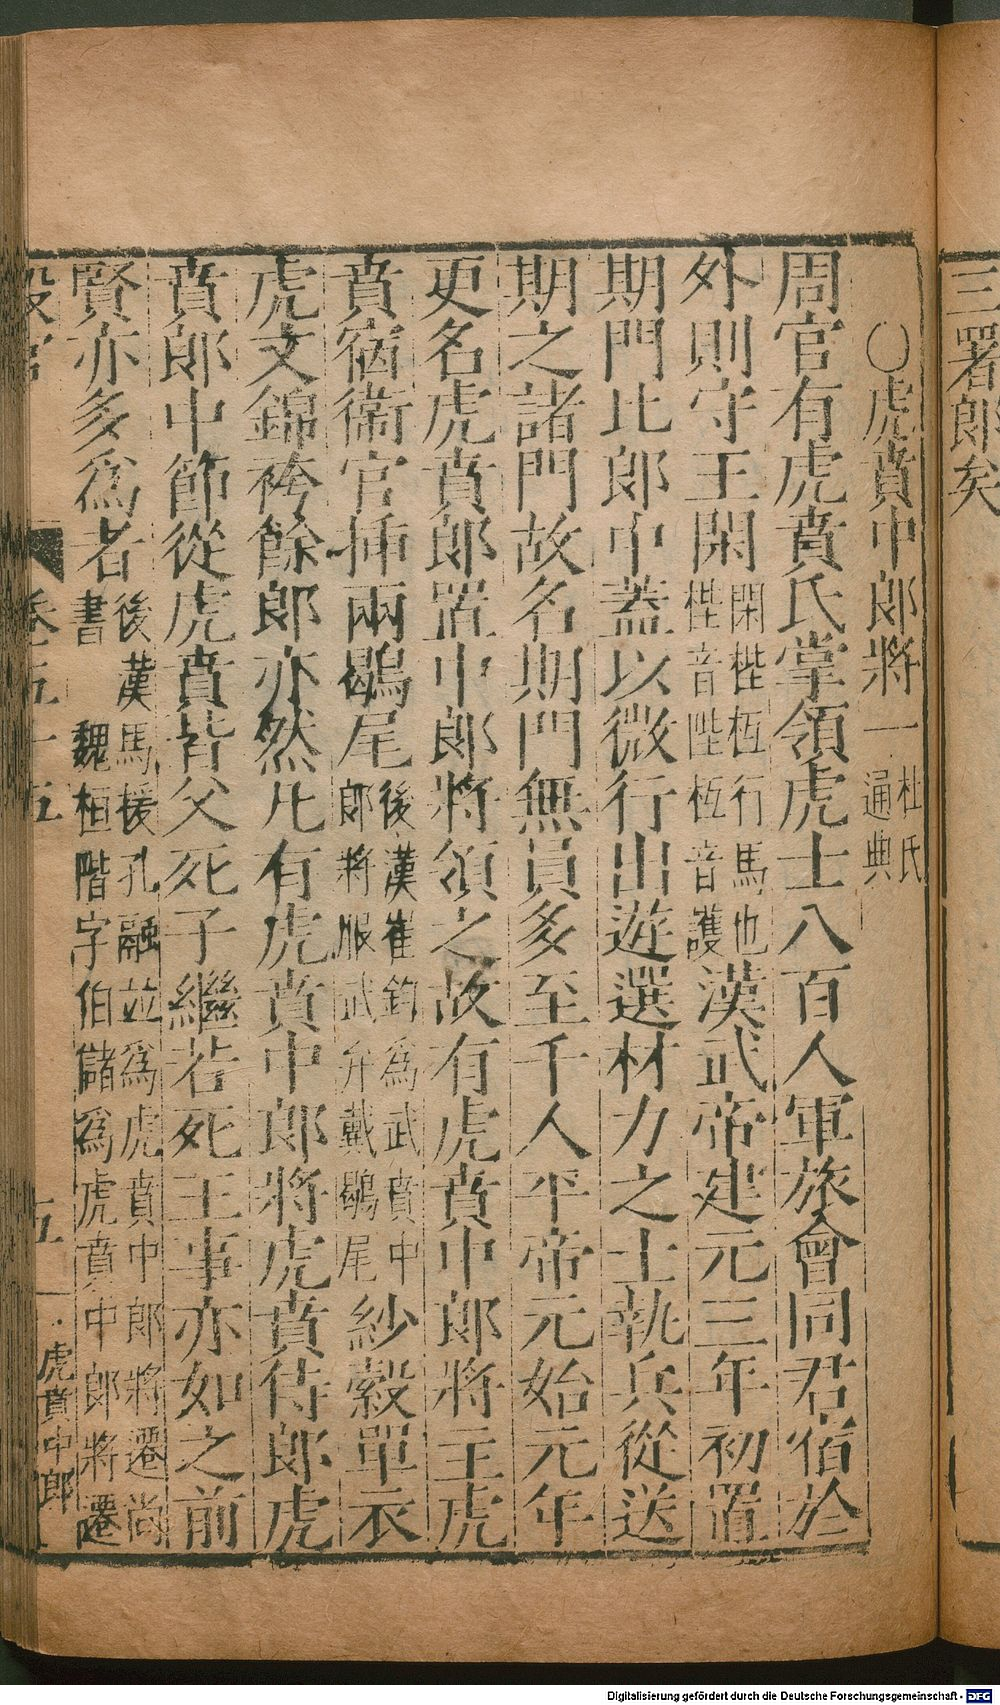 三署郎矣
〇虎賁中郎將一 杜氏通典
周官有虎賁氏掌領虎士八百人軍旅會同君宿於
外則守王閑 閑梐枑行馬也梐音陛枑音護 漢武帝建元三年初置
期門比郎中蓋以微行出遊選材力之士執兵從送
期之諸門故名期門無員多至千人平帝元始元年
更名虎賁郎置中郎將領之故有虎賁中郎將主虎
賁宿衞官插兩鶡尾 後漢崔鈞為武賁中郎將服武弁戴鶡尾 紗縠單衣
虎文錦袴餘郎亦然凡有虎賁中郎將虎賁侍郎虎
賁郎中節從虎賁皆父死子繼若死王事亦如之前
賢亦多爲者 後漢馬援孔融並爲虎賁中郎將遷尚書 魏桓階字伯儲爲虎賁中郎將遷
設官 卷五十五 五 虎賁中郎
Digitalisierung gefördert durch die Deutsche Forschungsgemeinschaft - DFG